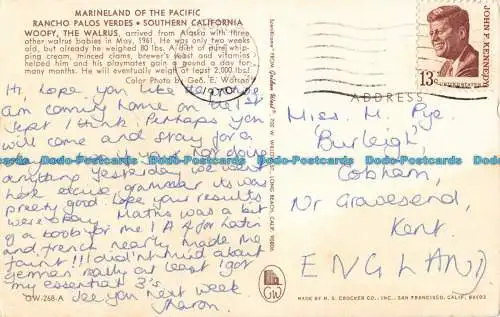 MARINELAND OF THE PACIFIC
RANCHO PALOS VERDES • SOUTHERN CALIFORNIA
WOOFY, THE WALRUS, arrived from Alaska with three
other walrus babies in May, 1961. He was only two weeks
old, but already he weighed 80 lbs. A diet of pure whip-
ping cream, minced clams, brewer's yeast and vitamins
helped him and his playmates gain a pound a day for
many months. He will eventually weigh at least 2,000 lbs!
Color Photo by Geo. E. Watson
Hi, hope you like
am coming home on the 1st
Sept I think. Perhaps you
will come and stay for a
anything yesterday we went
here excuse grammar its was
pretty good hope your results
were okay. Maths was a bit
of a boob for me 1 A 4 for Latin
and french nearly made me
faint!!! didn't hink about
German really at least I got
my essential 3's.
See you next week
Sharon.
GW-268-A
FROM Golden West
LONG BEACH, CALIF. 90806
GW
1970
JOHN F. KENNEDY
13c
ADDRESS
Miss M. Pye
'Burleigh',
Cobham,
Nr Gravesend,
Kent.
ENGLAND
MADE BY H. S. CROCKER CO., INC., SAN FRANCISCO, CALIF. 94103
Dodo-Postcards Dodo-Postcards Dodo-Postcards Dodo-Postcards Dodo-Postcards